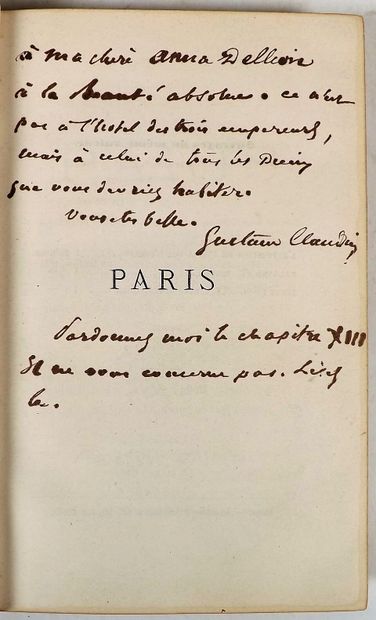 à ma chère Anna Dellion
à la Beauté absolue. ce n'est
pas à l'hotel des trois empereurs,
mais à celui de tous les Dieux
que vous devriez habiter.
Vous etes belle.
Gustave Claudin
PARIS
Pardonnez moi le chapitre XIII
Il ne vous concerne pas. Lisez
le.